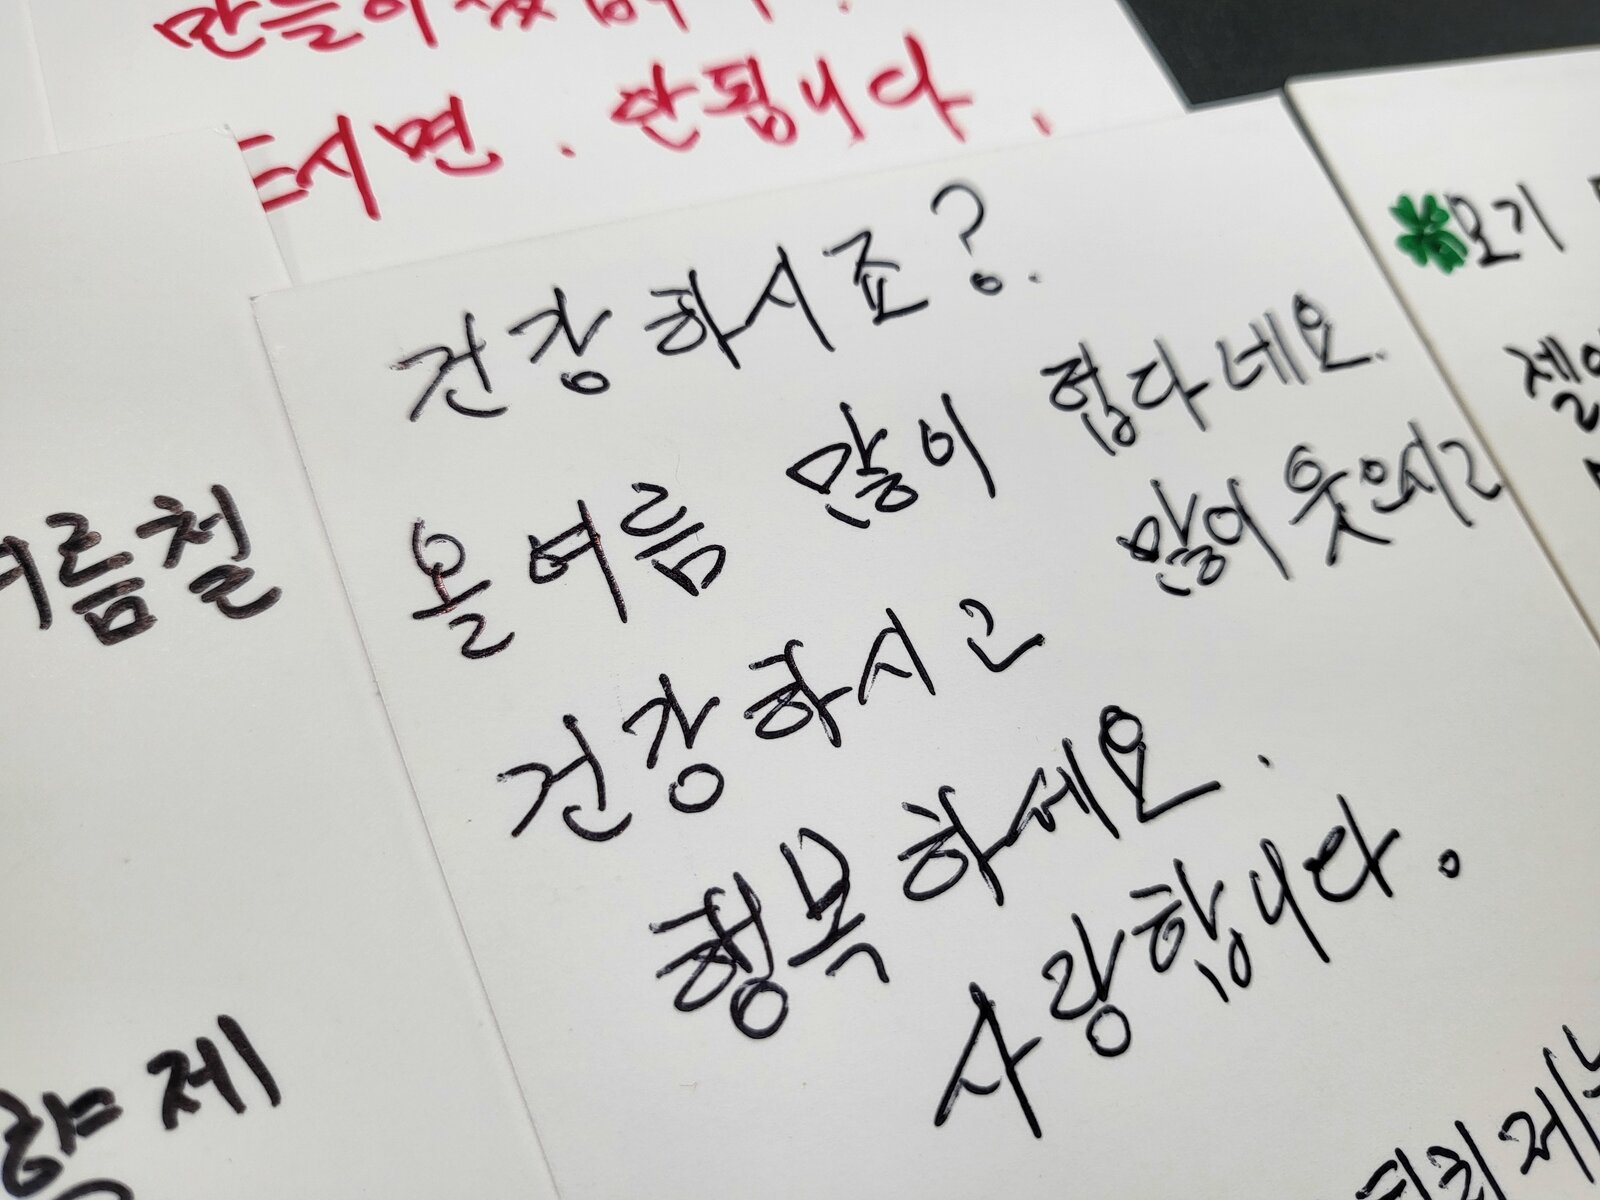 만들어
시면. 안됩니다.
건강하시죠?
올여름 많이 힙다네요.
건강하시고 많이 웃으시고
행복하세요.
사랑합니다.
여름철
제
모기